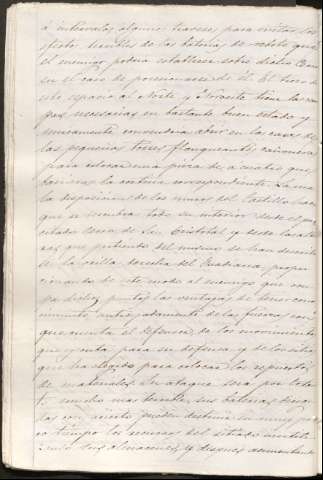 á intérvalos algunos traveses para evitar los
efectos terribles de las baterias de rebote que
el enemigo podria establecer sobre dicho Cerro
en el caso de posesionarse de él. El
este espacio al Norte y tiene las
necesarias en bastante buen estado y
unicamente convendria abrir en las caras de
las pequeñas torres flanqueantes, cañoneras
para colocar una pieza de á cuatro que
la cortina correspondiente. La ma-
la disposicion de los muros del Castillo hace
que se descubra todo su interior desde el pre-
citado cerro de Sn. Cristobal y desde las altu-
ras que partiendo del mismo se han descrito
en la orilla derecha del Guadiana, propor-
cionando de este modo al enemigo que ocu-
pa dichos puntos las ventajas de tener cono-
cimiento anticipadamente de las fuerzas con
que cuenta el defensor, de los movimientos
que ejecuta para su defensa y de los sitios
que ha elegido para colocar los repuestos
de materiales. Su ataque será por lo tan-
to mucho mas terrible, sus baterias
pueden destruir en muy po-
co tiempo los recursos del sitiado inutili-
zando sus almacenes, y despues aumentando